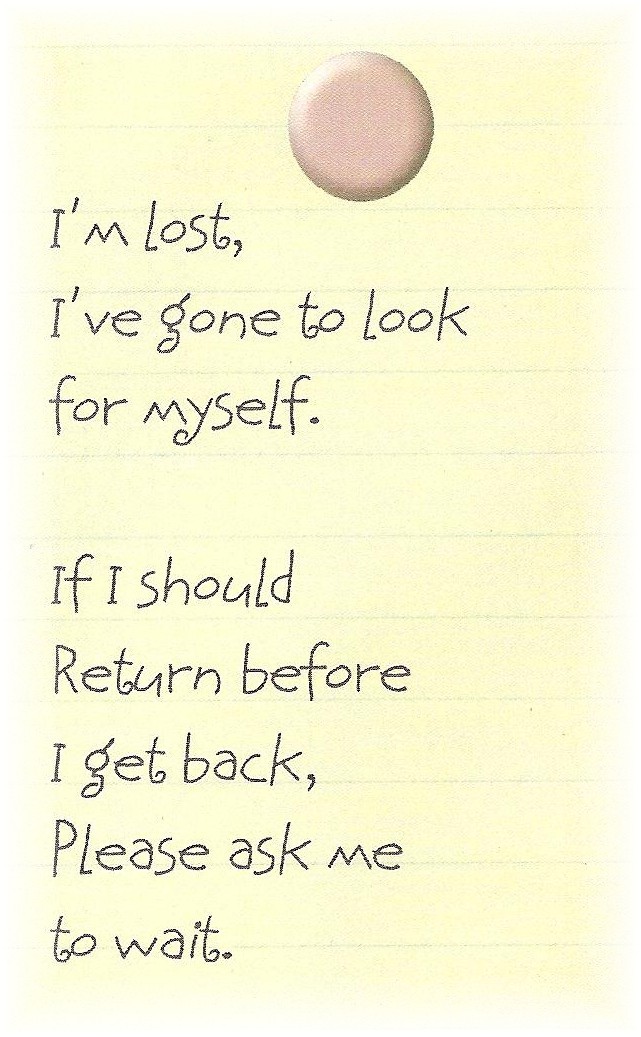 I'm lost,
I've gone to look
for myself.
If I should
Return before
I get back,
Please ask me
to wait.